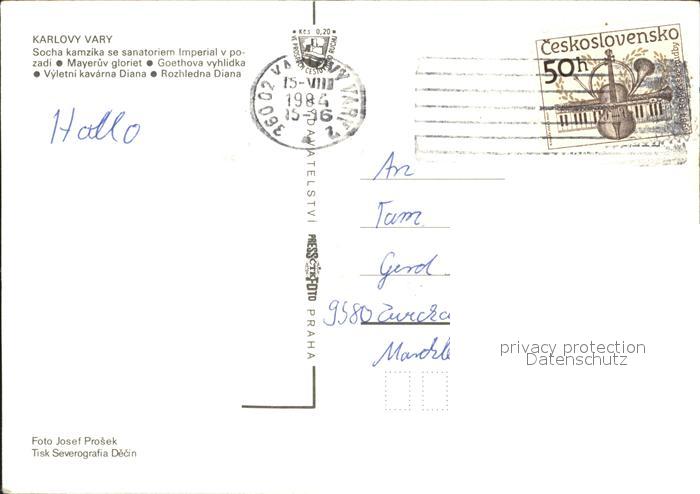 KARLOVY VARY
Socha kamzíka se sanatoriem Imperial v po-
zadí ● Mayerův gloriet ● Goethova vyhlídka
● Výletní kavárna Diana ● Rozhledna Diana
Kčs 0,20
360 02 KARLOVY VARY 2
15-VIII
1984
15-16
Československo
50h
Hallo
An
Tam
Gerd
VYDAVATELSTVÍ
PRESSFOTO
PRAHA
privacy protection
Datenschutz
Foto Josef Prošek
Tisk Severografia Děčín